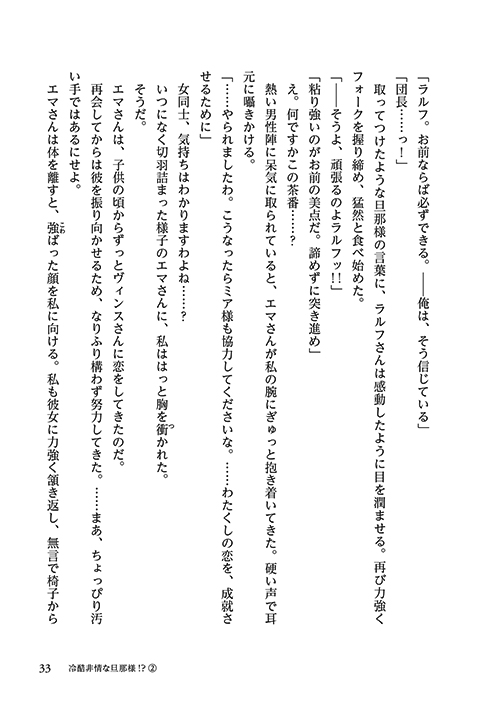 「ラルフ。お前ならば必ずできる。――俺は、そう信じている」
「団長……っ！」
　取ってつけたような旦那様の言葉に、ラルフさんは感動したように目を潤ませる。再び力強く
フォークを握り締め、猛然と食べ始めた。
「――そうよ、頑張るのよラルフッ!!」
「粘り強いのがお前の美点だ。諦めずに突き進め」
　え。何ですかこの茶番……？
　熱い男性陣に呆気に取られていると、エマさんが私の腕にぎゅっと抱き着いてきた。硬い声で耳
元に囁きかける。
「……やられましたわ。こうなったらミア様も協力してくださいな。……わたくしの恋を、成就さ
せるために」
　女同士、気持ちはわかりますわよね……？
　いつになく切羽詰まった様子のエマさんに、私ははっと胸を衝かれた。
　そうだ。
　エマさんは、子供の頃からずっとヴィンスさんに恋をしてきたのだ。
　再会してからは彼を振り向かせるため、なりふり構わず努力してきた。……まあ、ちょっぴり汚
い手ではあるにせよ。
　エマさんは体を離すと、強ばった顔を私に向ける。私も彼女に力強く頷き返し、無言で椅子から
33　冷酷非情な旦那様!?②